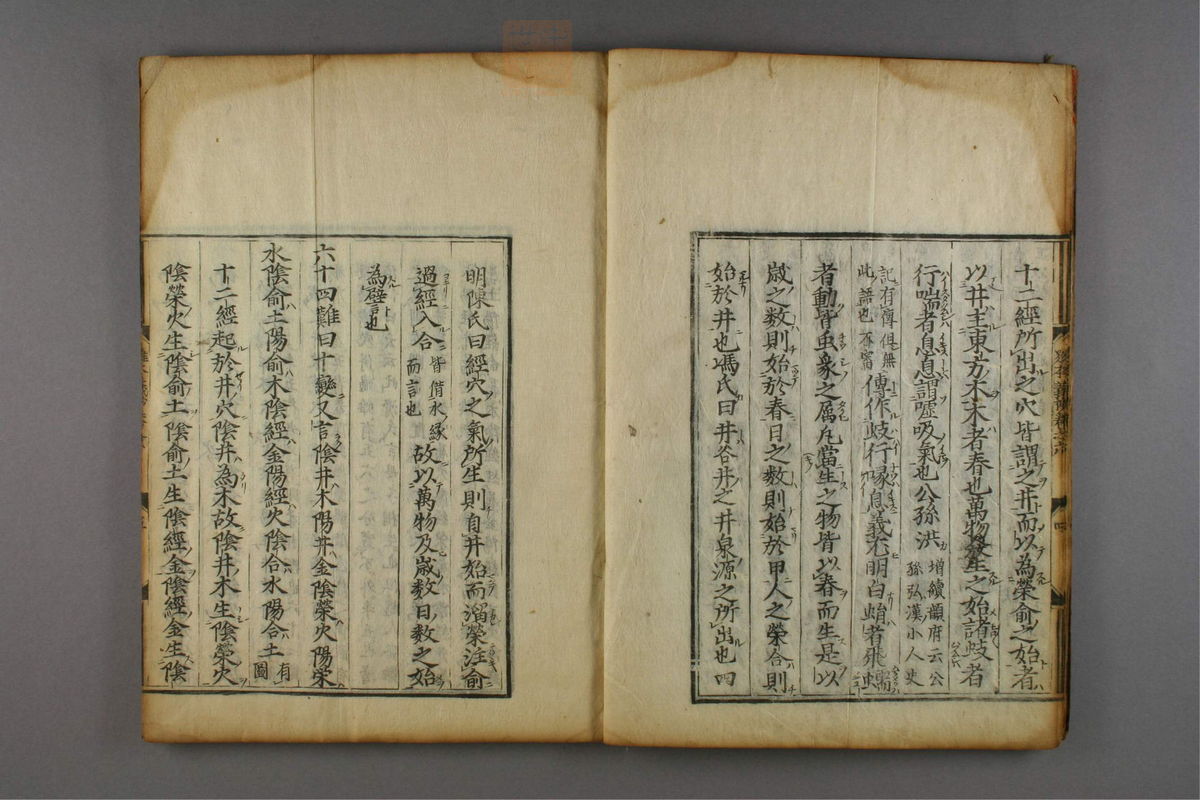 十二經所出之穴皆謂之井而以為滎俞之始者
以井主東方木木者春也萬物發生之始諸蚑者
行喘者息息謂噓吸氣也公孫洪増續韻府云公孫弘漢小人史
記有傳但無此語也不審傳作蚑行喙息義尤明白蛸者飛蠕
者動皆虫豸之属凡當生之物皆以春而生是以
歳之数則始於春日之数則始於甲人之榮合則
始於井也馮氏曰井谷井之井泉源之所出也四
明陳氏曰經穴之氣所生則自井始而溜榮注俞
過經入合皆借水而言也故以萬物及歳数日数之始
為譬也
六十四難曰十變又言陰井木陽井金陰榮火陽榮
水陰俞土陽俞木陰經金陽經火陰合水陽合土有圖
十二經起於井穴陰井為木故陰井木生陰榮火
陰榮火生陰俞土陰俞土生陰經金陰經金生陰